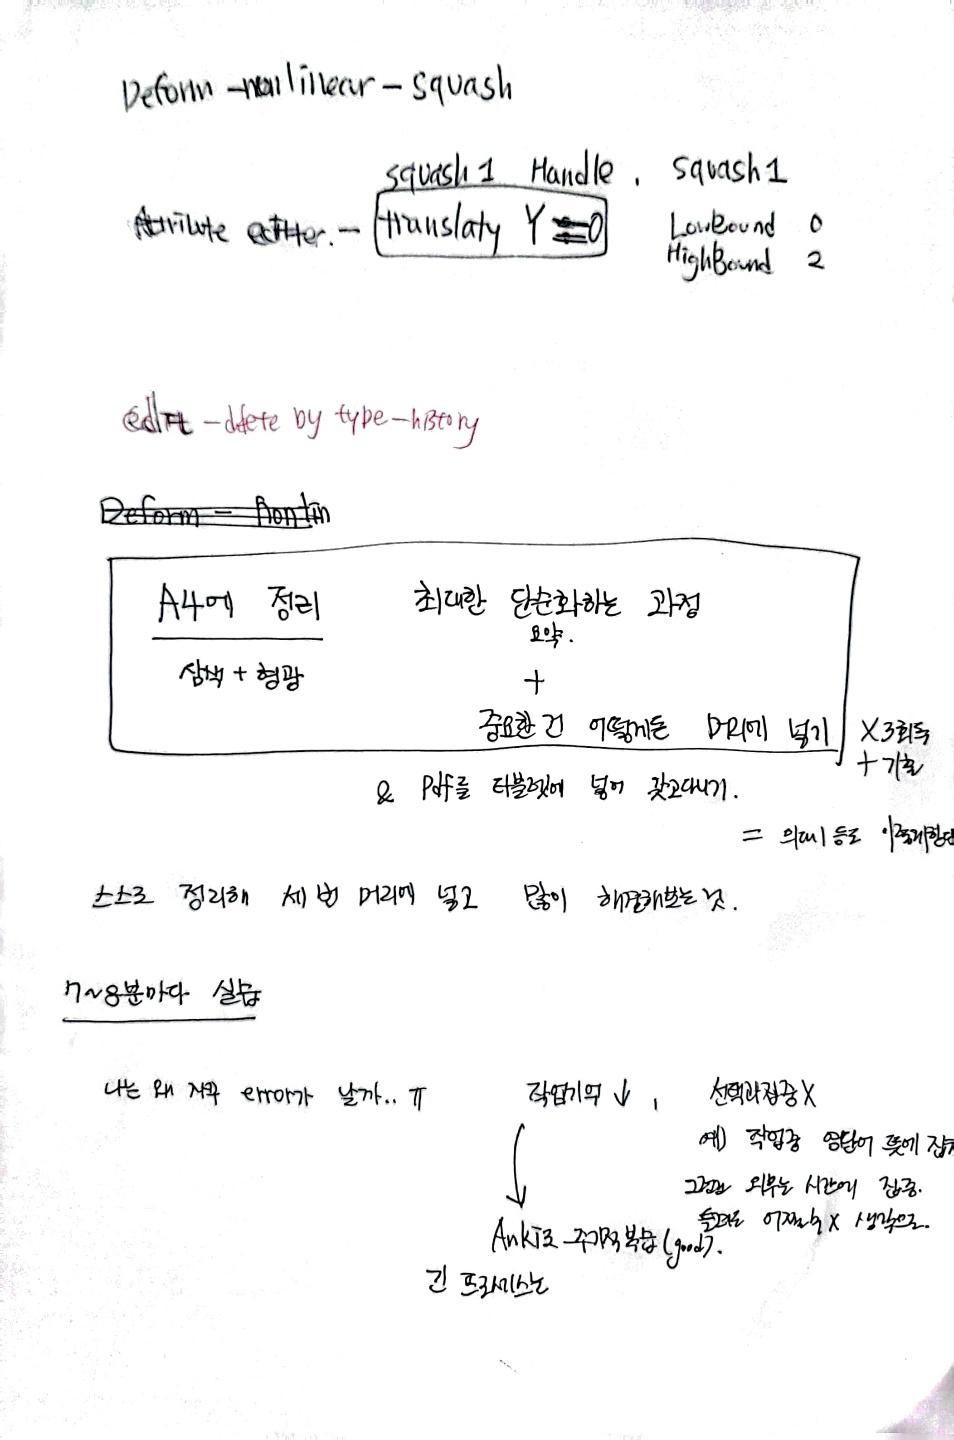 Deform -nonlinear - squash
squash1 Handle, squash1
Attribute editer. - translaty Y=0
LowBound 0
HighBound 2
edit -delete by type-history
Deform -
A4에 정리 최대한 단순화하는 과정
요약.
삼색 + 형광 +
중요한 건 어떻게든 머리에 넣기 X3회독
+ 기출
& Pdf를 타블렛에 넣어 갖고다니기.
= 의대 등도
스스로 정리해 세 번 머리에 넣고 많이 해결해보는 것.
7~8분마다 실습
나는 왜 자꾸 error가 날까.. ㅠ 작업기억 ↓, 선택과집중X
예) 작업중 영단어 뜻에
외우는 시간에 집중.
X 생각으로.
Anki로 주기적 복습 (good).
긴 프로세스는